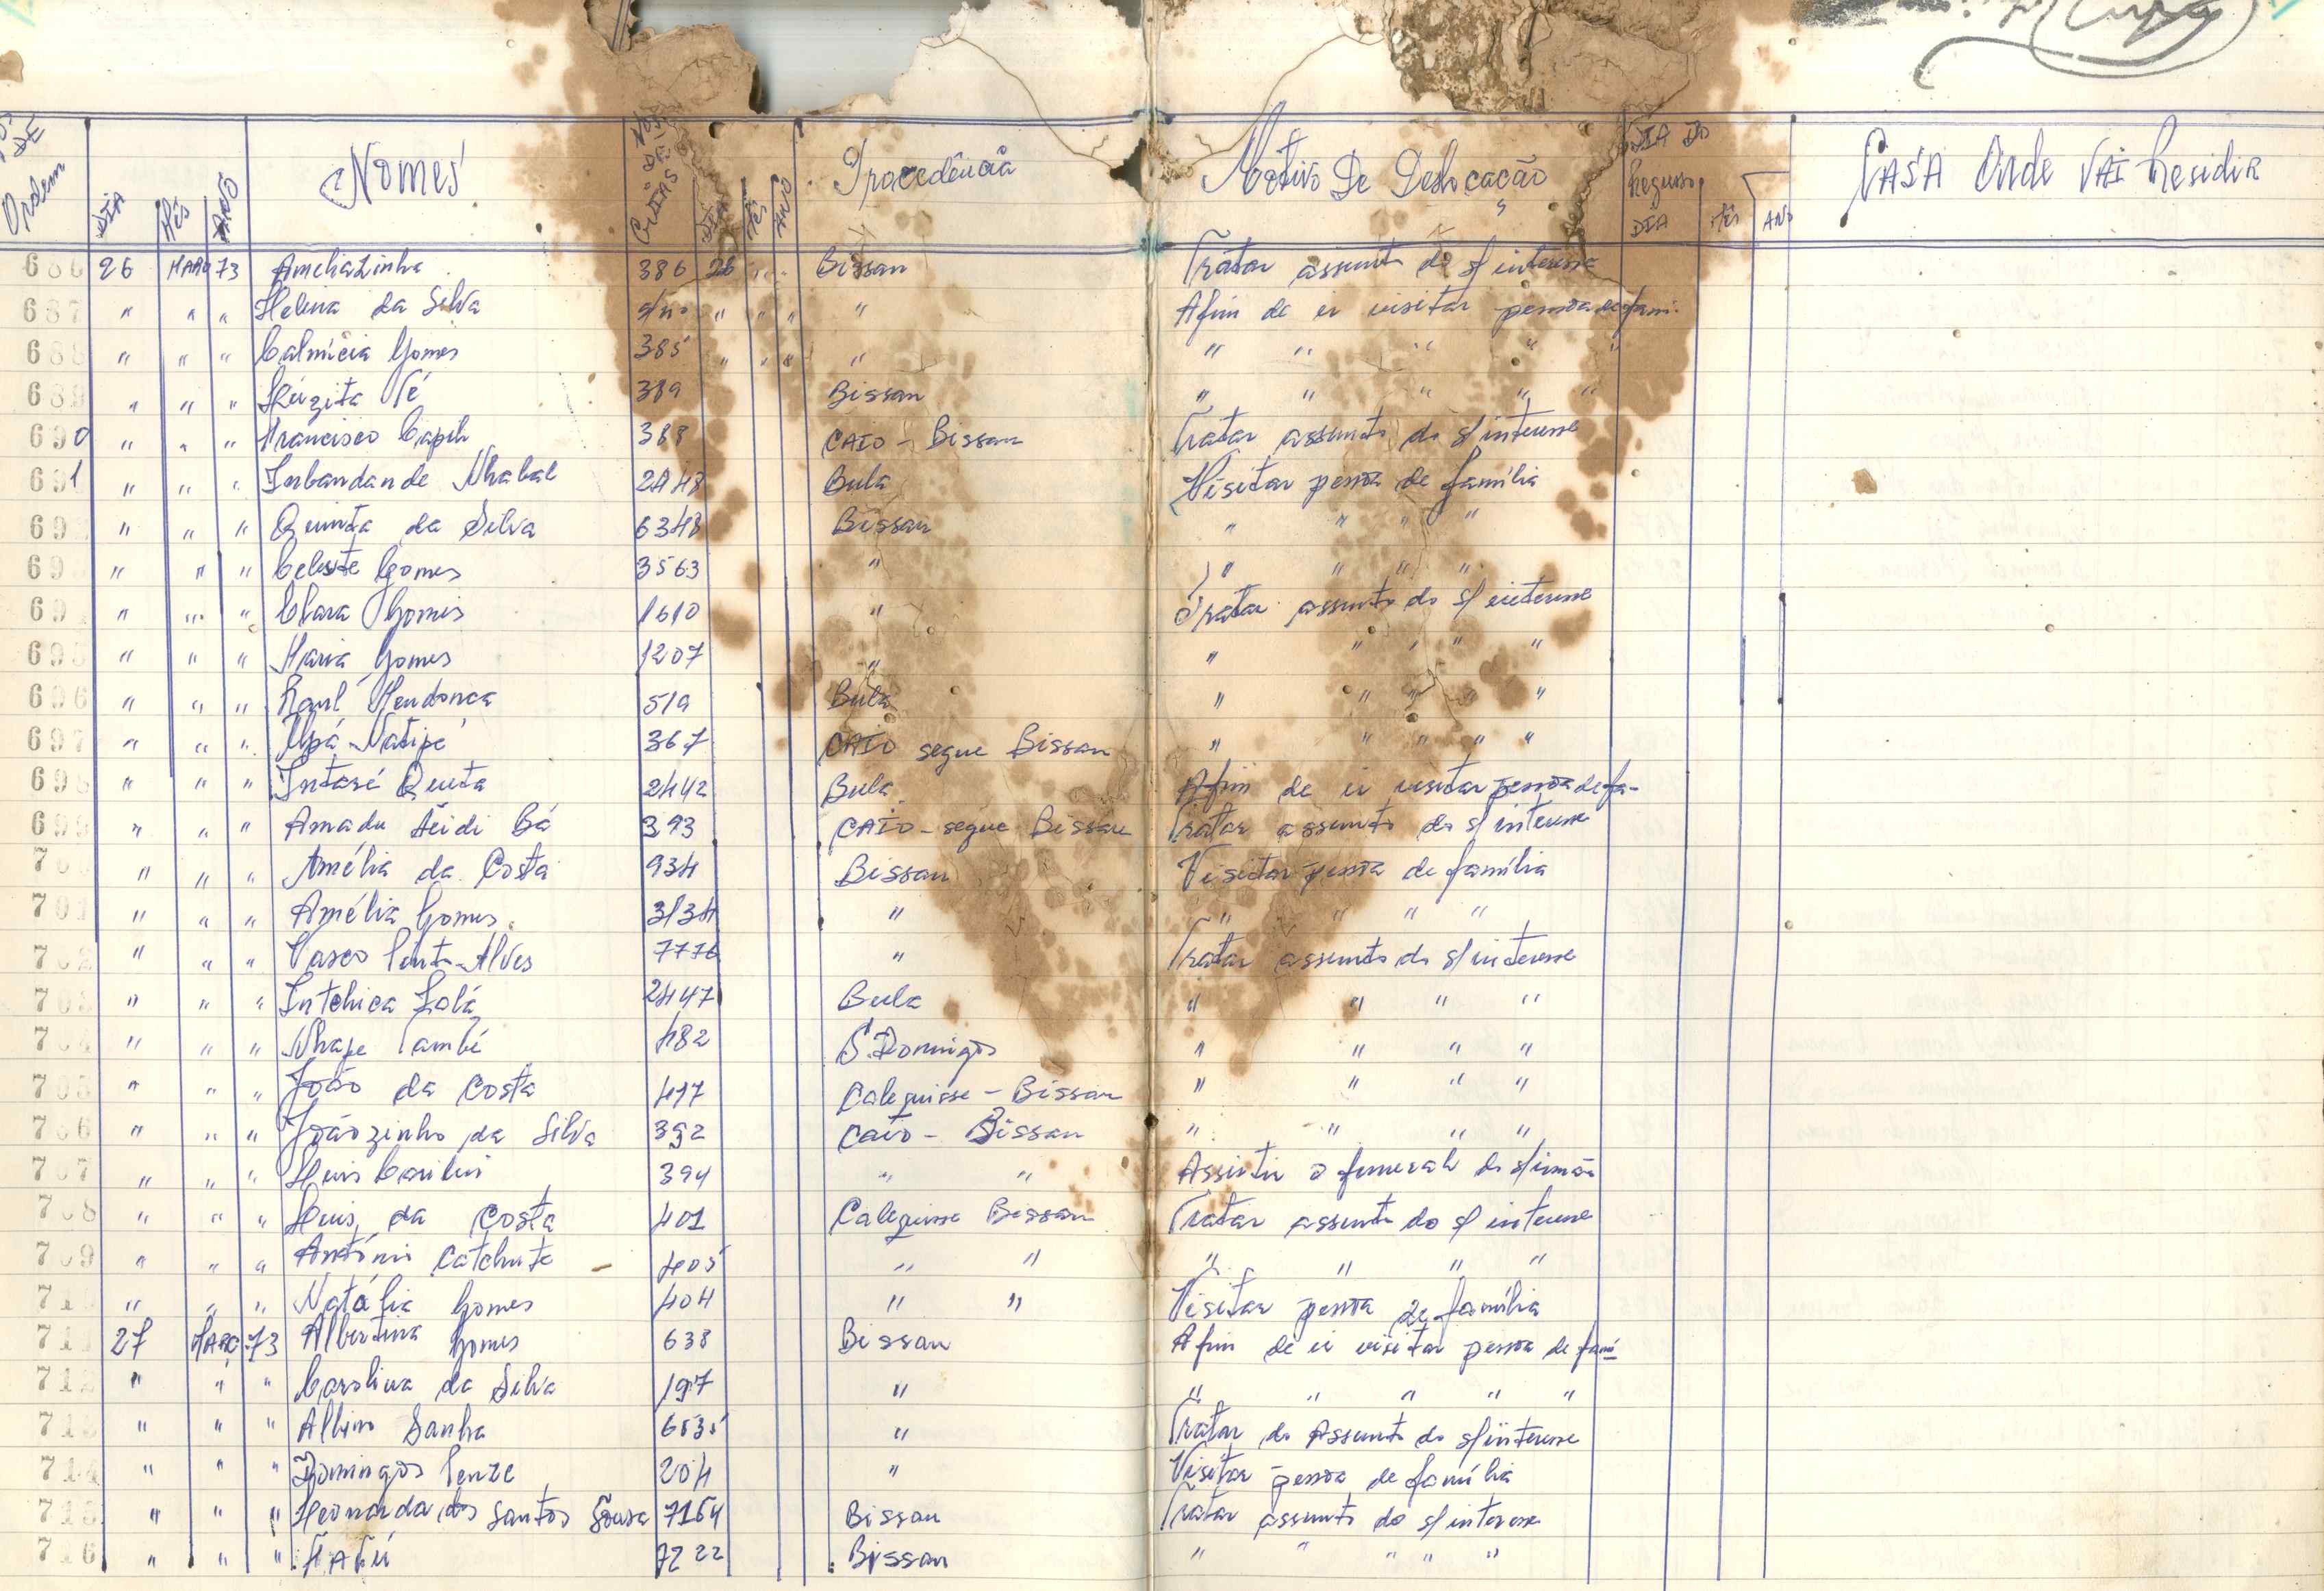 Nos DE Ordem DIA Mês ANO Nomes Nos DE GUIAS DIA Mês ANO Procedência Motivo De Deslocação DIA DO Regresso DIA Mês ANO CASA Onde VAI Residir
686 26 MARO 73 Amelia Linha 386 26 " " Bissau Tratar assunto do s/ interesse
687 " " " Helena da Silva s/no " " " " Afim de ir visitar pessoa de fami.
688 " " " Calmicia Gomes 385 " " " " " " " " "
689 " " " 389 Bissau " " " " "
690 " " " Francisco 388 CAIO - Bissau Tratar assunto do s/ interesse
691 " " " Inbandande Nhabal 2448 Bula Visitar pessoa de família
69 " " " Quinta da Silva 6348 Bissau " " " "
69 " " " Celeste Gomes 3563 " " " " "
69 " " " Clara Gomes 1610 " Tratar assunto do s/ interesse
695 " " " Maria Gomes 1207 " " " " " "
696 " " " Raul Mendonca 519 Bula " " " " "
697 " " " 367 CAIO segue Bissau " " " " "
698 " " " Intasé Quuta 2442 Bula Afim de ir visitar pessoa de fa-
699 " " " Amadu Seidi Bá 393 CAIO - segue Bissau Tratar assunto do s/ interesse
70 " " " Amélia da Costa 934 Bissau Visitar pessoa de família
701 " " " Amélia Gomes 3134 " " " " "
702 " " " Vasco Pinto Alves 7776 " Tratar assunto do s/ interesse
703 " " " Intchica 2447 Bula " " " "
704 " " " Nhape Cambé 482 S. Domingos " " " "
705 " " " João da Costa 417 Calequisse - Bissau " " " "
706 " " " Joãozinho da Silva 392 Caio - Bissau " " " "
707 " " " Luis 394 " " Assistir o funeral do s/ irmão
708 " " " Luis da Costa 401 Calequisse Bissau Tratar assunto do s/ interesse
709 " " " António Catchute 405 " " " " " "
71 " " " Natália Gomes 404 " " Visitar pessoa de família
711 27 MARC 73 Albertina Gomes 638 Bissau Afim de ir visitar pessoa de fami
712 " " " Carolina da Silva 197 " " " " " "
71 " " " Albino Sanha 6535 " Tratar do Assunto do s/ interesse
714 " " " Domingos 204 " Visitar pessoa de família
715 " " " Leonarda dos Santos Sousa 7164 Bissau Tratar assunto do s/ interesse
716 " " " 7222 Bissau " " " " "